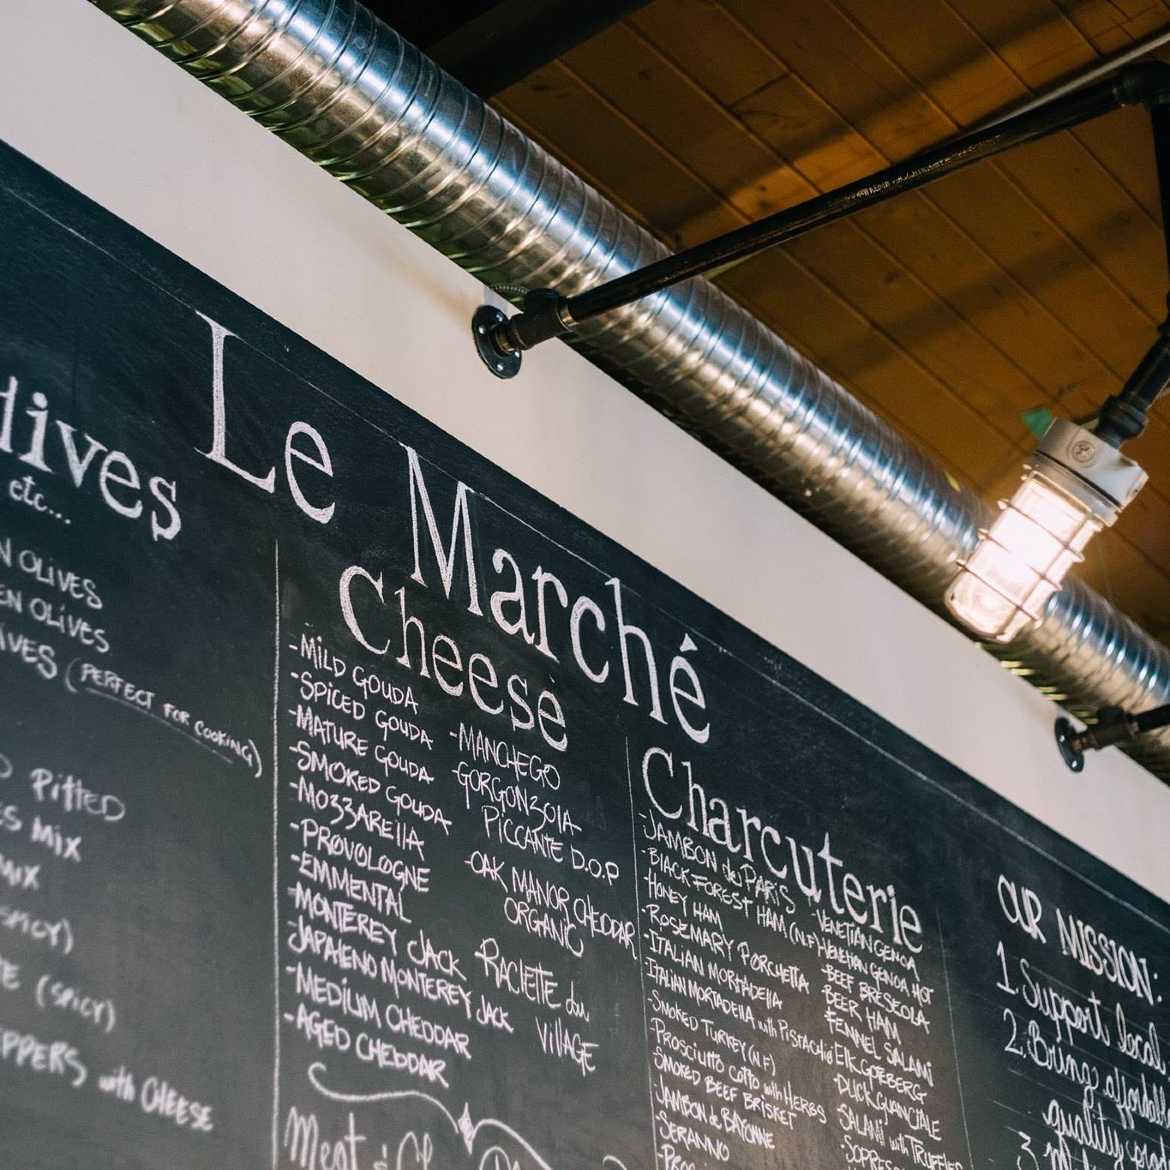 Le Marché
etc...
OLIVES
OLIVES
(PERFECT FOR COOKING)
Pitted
MIX
MIX
(SPICY)
(SPICY)
with CHEESE
Cheese
-MILD GOUDA
-SPICED GOUDA
-MATURE GOUDA
-SMOKED GOUDA
-MOZZARELLA
-PROVOLOGNE
-EMMENTAL
-MONTEREY JACK
-JAPALENO MONTEREY JACK
-MEDIUM CHEDDAR
-AGED CHEDDAR
-MANCHEGO
-GORGONZOLA
PICCANTE D.O.P
-OAK MANOR CHEDDAR
ORGANIC
-RACLETTE du
VILLAGE
Meat
Charcuterie
-JAMBON de PARIS
-BLACK FOREST HAM (N.F)
-HONEY HAM
-ROSEMARY PORCHETTA
-ITALIAN MORTADELLA
-ITALIAN MORTADELLA with PISTACHIO
-SMOKED TURKEY (N.F)
-PROSCIUTTO COTTO with HERBS
-SMOKED BEEF BRISKET
-JAMBON de BAYONNE
-SERANNO
-VENETIAN GENOA
-VENETIAN GENOA HOT
-BEEF BRESEOLA
-BEER HAM
-FENNEL SALAMI
-DUCK GUANCIALE
-SALAMI with TRUFFLES
OUR MISSION:
1. Support local
2. Bring
quality
3.